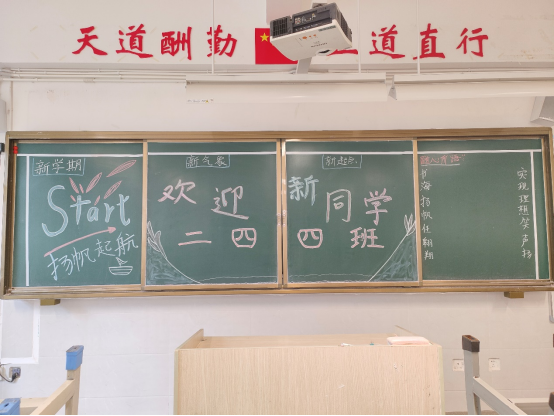 天道酬勤 道直行
新学期
新气象
新起点
Start
扬帆起航
欢迎新同学
二四四班
书海扬帆任翱翔
实现理想笑声扬